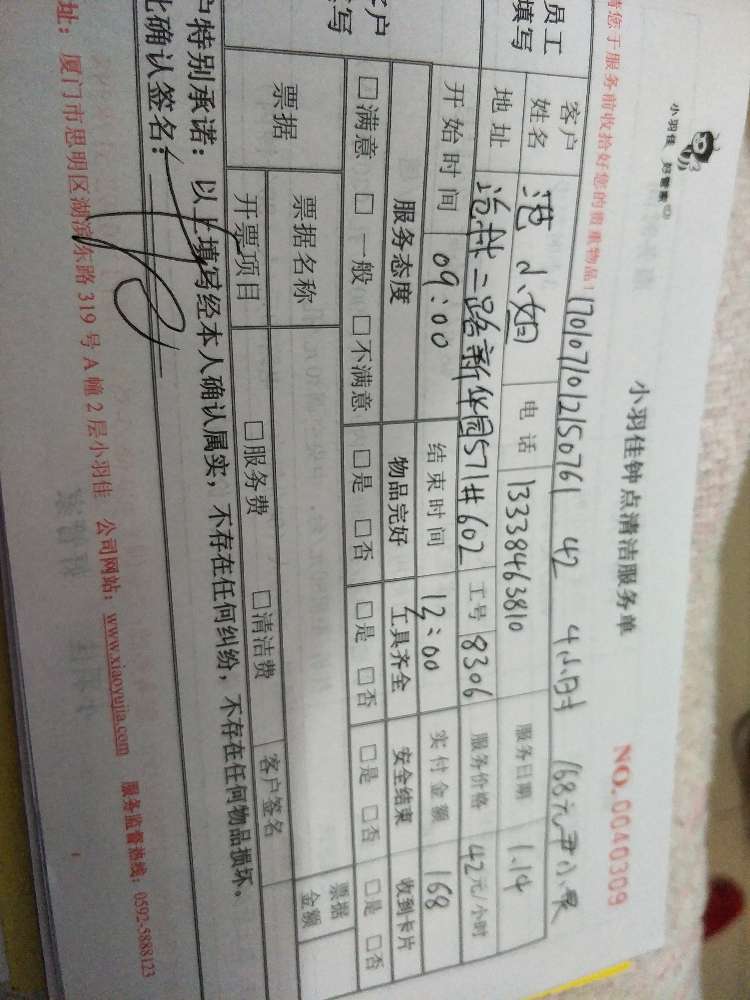 小羽佳 好管家
小羽佳钟点清洁服务单
NO.0040309
请您于服务前收拾好您的贵重物品!
1701071012150761 42 4小时 168元
员工填写
客户姓名 范小姐 电话 13338463810 服务日期 1.14
地址 二路新华园571#602 工号 8306 服务价格 42元/小时
开始时间 09:00 结束时间 13:00 实付金额 168
客户填写
服务态度 物品完好 工具齐全 安全结束 收到卡片
□满意 □一般 □不满意 □是 □否 □是 □否 □是 □否 □是 □否
票据 票据名称 票据金额
开票项目 □服务费 □清洁费 客户签名
户特别承诺:以上填写经本人确认属实,不存在任何纠纷,不存在任何物品损坏。
此确认签名:
址:厦门市思明区湖滨东路319号A幢2层小羽佳 公司网站:www.xiaoyujia.com 服务监督热线:0592-5888123